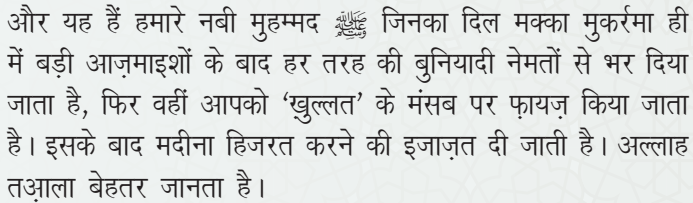 और यह हैं हमारे नबी मुहम्मद ﷺ जिनका दिल मक्का मुकर्रमा ही
में बड़ी आज़माइशों के बाद हर तरह की बुनियादी नेमतों से भर दिया
जाता है, फिर वहीं आपको ‘ख़ुल्लत’ के मंसब पर फ़ायज़ किया जाता
है। इसके बाद मदीना हिजरत करने की इजाज़त दी जाती है। अल्लाह
तआ़ला बेहतर जानता है।